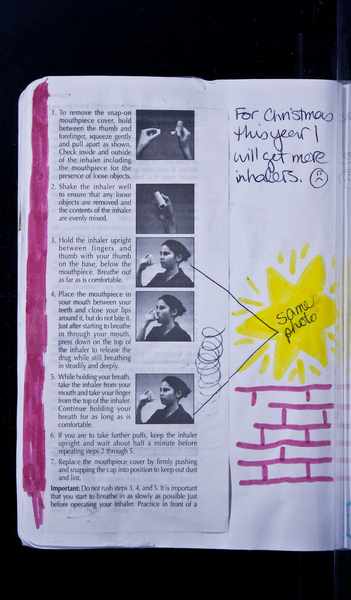 1. To remove the snap-on
mouthpiece cover, hold
between the thumb and
forefinger, squeeze gently
and pull apart as shown.
Check inside and outside
of the inhaler including
the mouthpiece for the
presence of loose objects.
2. Shake the inhaler well
to ensure that any loose
objects are removed and
the contents of the inhaler
are evenly mixed.
3. Hold the inhaler upright
between fingers and
thumb with your thumb
on the base, below the
mouthpiece. Breathe out
as far as is comfortable.
4. Place the mouthpiece in
your mouth between your
teeth and close your lips
around it, but do not bite it.
Just after starting to breathe
in through your mouth,
press down on the top of
the inhaler to release the
drug while still breathing
in steadily and deeply.
5. While holding your breath,
take the inhaler from your
mouth and take your finger
from the top of the inhaler.
Continue holding your
breath for as long as is
comfortable.
6. If you are to take further puffs, keep the inhaler
upright and wait about half a minute before
repeating steps 2 through 5.
7. Replace the mouthpiece cover by firmly pushing
and snapping the cap into position to keep out dust
and lint.
Important: Do not rush steps 3, 4, and 5. It is important
that you start to breathe in as slowly as possible just
before operating your inhaler. Practice in front of a
For Christmas
this year I
will get more
inhalers. ☹
same
photo